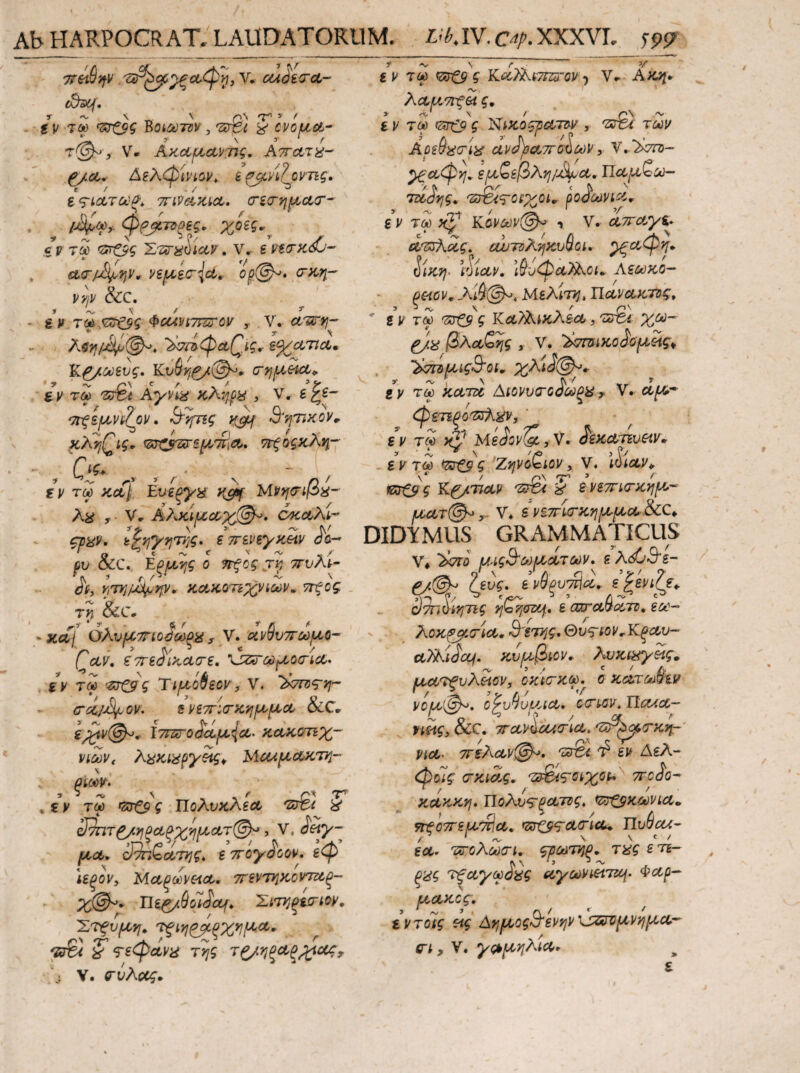 Ab HARPOCRAT. LAUDATORUM. Lib. IV. Cap. XXXVI. 599
πειθην παραγραφὴ, V. αἰδέσα-
σθαι.
ἐν τῷ πρὸς Βοιωτὸν, περὶ τοῦ ὀνόμα-
τος, V. Ἀκαμαντίς. Ἀπατού-
ρια. Δελφίνιον. ἐρανίζοντες.
ἑστιατωρ. πινάκια. σεσημασ-
μένω. φράτορες. χόες.
ἐν τῷ πρὸς Σπουδίαν. V. ἐνεσκευ-
ασμένην. νεμέσεια. ὅρος. σκη-
νὴν &c.
ἐν τῷ πρὸς Φαίνιππον, V.
ἀπόφασις. ἐσχατιά.
Κριωεύς. Κυθήριος. σημεῖα.
ἐν τῷ περὶ Ἁγνίου κλήρου, V. ἐξε-
θῆτες καὶ θητικόν.
κλῆσις. πρόσκλη-
σις.
ἐν τῷ κατ' Εὐέργου καὶ Μνησιβού-
λου, V. Ἀλκίμαχος. ἐκαλι-
στρουν. ἐξηγητής. ἐπενεγκεῖν δό-
ρυ &c. Ἑρμῆς ὁ πρὸς τῇ πυλί-
δι, ᾐτημένην. κακοτεχνιῶν. πρὸς
τῇ &c.
κατ' Ὀλυμπιοδώρου, V. ἀνθυπωμο-
σαν. ἐπεδίκασε. ὑπωμοσία.
ἐν τῷ πρὸς Τιμόθεον, V.
ἐνεπίσκημμα &c.
ἐχῖνος. Ἱπποδάμεια. κακοτεχ-
νιῶν. λυκιουργεῖς. Μαιμακτη-
ριών.
ἐν τῷ πρὸς Πολυκλέα περὶ τοῦ
ἐπιτριηραρχήματος, V. δεῖγ-
μα. ἐπιβάτης. ἐπόγδοον. ἐφ
ἱερόν, Μαρώνεια. πεντηκόνταρ-
χος. Περίθοιδαι. Σιτηρέσιον.
Στρύμη. τριηράρχημα.
περὶ τοῦ στεφάνου τῆς τριηραρχίας,
V. σύλας.
ἐν τῷ πρὸς Κάλλιππον, V. Ἀκη.
λαμπρεῖς.
ἐν τῷ πρὸς Νικόστρατον, περὶ τῶν
Ἀρεθουσίου ἀνδραπόδων, V. ἀπο-
γραφή. ἐμβεβλημένα. Παμβω-
τάδης. περίστοιχοι. ῥοδωνία.
ἐν τῷ κατὰ Κόνωνος, V. ἄπαγε.
αὐτολήκυθοι. γραφή.
δίκη. ἰδίαν. ἰθύφαλλοι. Λεωκό-
ρειον. λίθος. Μελίτη. Πάνακτος.
ἐν τῷ πρὸς Καλλικλέα, περὶ χω-
ρίου βλάβης, V. ἀποικοδομεῖς.
χλῖδος.
ἐν τῷ κατὰ Διονυσοδώρου, V. ἀμ-
φετερόπλουν,
ἐν τῷ κατὰ Μέδοντος, V. δεκατεύειν.
ἐν τῷ πρὸς Ζηνόβιον, V. ἰδίαν.
πρὸς Κριτίαν περὶ τοῦ ἐνεπισκήμ-
ματος, V. ἐνεπίσκημμα &c.
DIDYMUS GRAMMATICUS
V. ἀπὸ μισθωμάτων. ἐλευθέ-
ριος ζεύς. ἐξενίζε.
ἐπιδιητὶς
λοκρασία. θέτης. Θύστιον. Κραυ-
αλλίδαι. κυμβίον. λυκιουργεῖς.
ματρυλεῖον, ὀκίσκῳ. ὁ κάτωθεν
νόμος. ὀξυθύμια. ὅσιον. Παιαν-
ιεῖς, &c. πανδαισία. παρασκή-
νια. πέλανος. περὶ τῆς ἐν Δελ-
φοῖς σκιᾶς. περίστοιχοι. ποδο-
κάκκη. Πολύστρατος. προκώνια.
προπέμπτα. προστασία. Πυθαι-
έα. πολῶσι. στρωτήρ. τοὺς ἑτέ-
ρους τραγῳδοὺς ἀγωνιεῖται. Φαρ-
μακός.
ἐν τοῖς εἰς Δημοσθένην ὑπομνήμα-
σι, V. γαμηλία.
ε